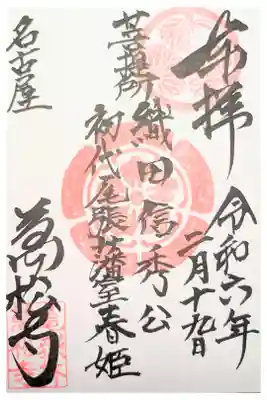 奉拝
令和六年
二月十九日
菩提所
織田信秀公
初代尾張藩室春姫
名古屋
萬松寺